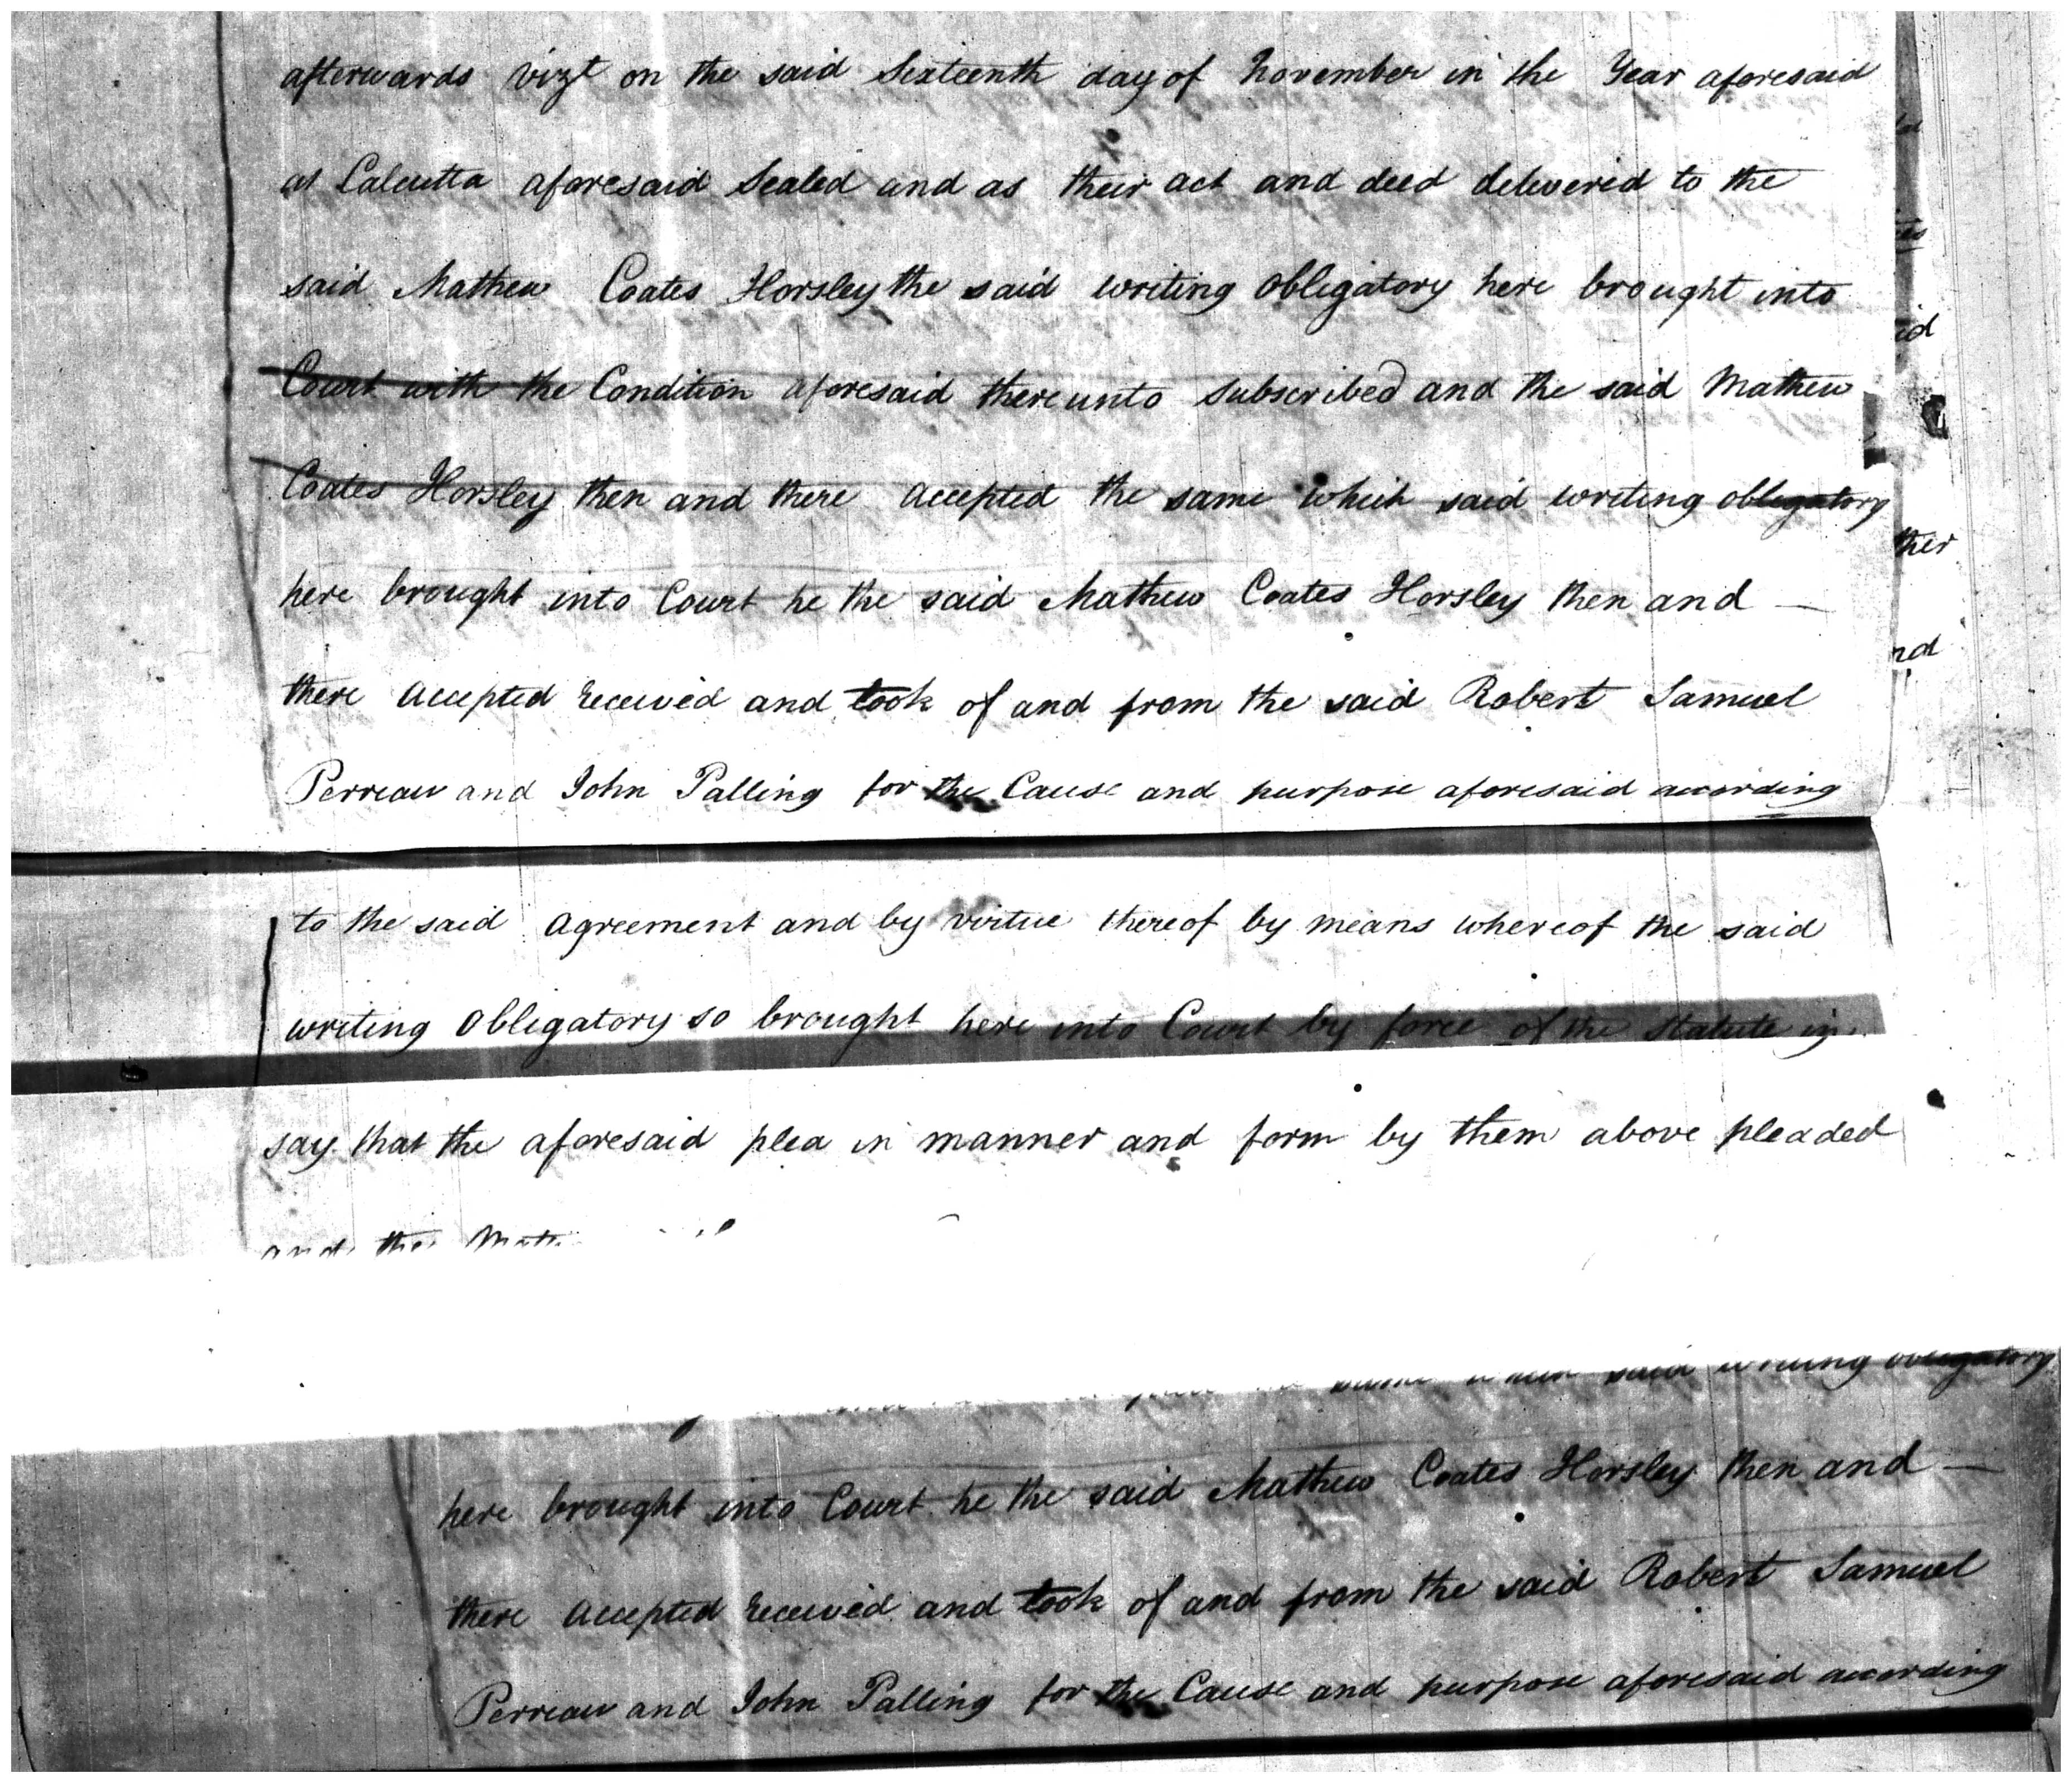 afterwards vizt on the said Sixteenth day of November in the Year aforesaid
at Calcutta aforesaid Sealed and as their act and deed delivered to the
said Mathew Coates Horsley the said writing Obligatory here brought into
Court with the Condition aforesaid thereunto subscribed and the said Mathew
Coates Horsley then and there accepted the same which said writing obligatory
here brought into Court he the said Mathew Coates Horsley then and —
there accepted received and took of and from the said Robert Samuel
Perreau and John Palling for the Cause and purpose aforesaid according
to the said agreement and by virtue thereof by means whereof the said
writing Obligatory so brought here into Court by force of the Statute in
say that the aforesaid plea in manner and form by them above pleaded
and the
said writing obligatory
here brought into Court he the said Mathew Coates Horsley then and —
there accepted received and took of and from the said Robert Samuel
Perreau and John Palling for the Cause and purpose aforesaid according